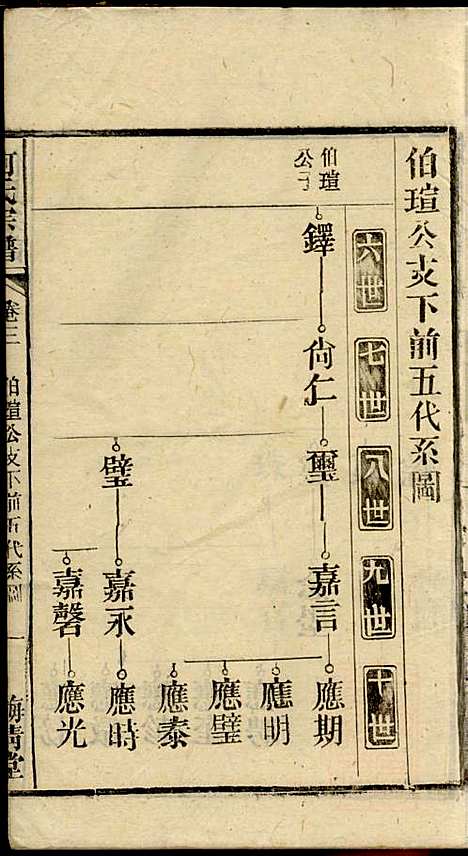 伯瑄公支下前五代系圖
六世
七世
八世
九世
十世
伯瑄公子
鐸
尚仁
璽
嘉言
應期
應明
應璧
應泰
璧
嘉永
應時
嘉磬
應光
氏宗譜
卷三
伯瑄公支下前五代系圖
一
堂